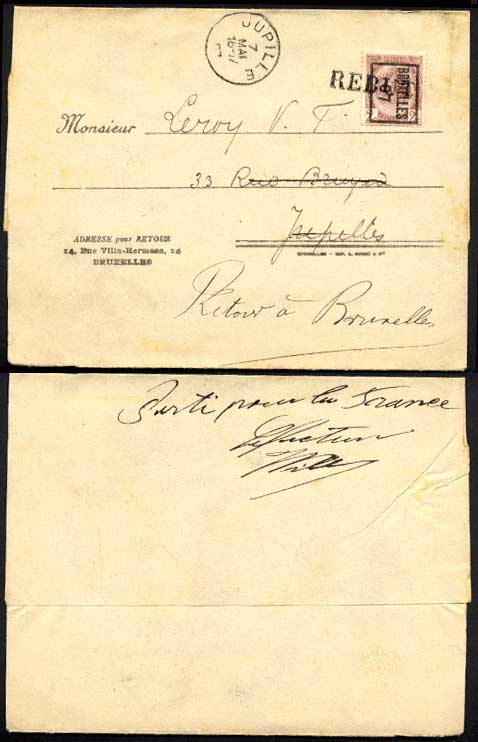 JUPILLE
7
MAI
REBUT
BRUXELLES
07
2 2
Monsieur Leroy V. T.
33 Rue Bruyère
Jupelles
ADRESSE pour RETOUR
14, Rue Villa-Hermosa, 14
BRUXELLES
Retour à Bruxelles
Parti pour la France